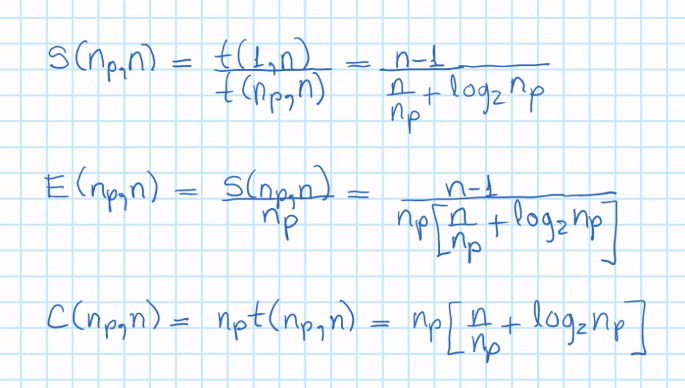 S(nₚ,n) = t(1,n)/t(nₚ,n) = (n-1)/(n/nₚ + log₂ nₚ)
E(nₚ,n) = S(nₚ,n)/nₚ = (n-1)/(nₚ[n/nₚ + log₂ nₚ])
C(nₚ,n) = nₚt(nₚ,n) = nₚ[n/nₚ + log₂ nₚ]